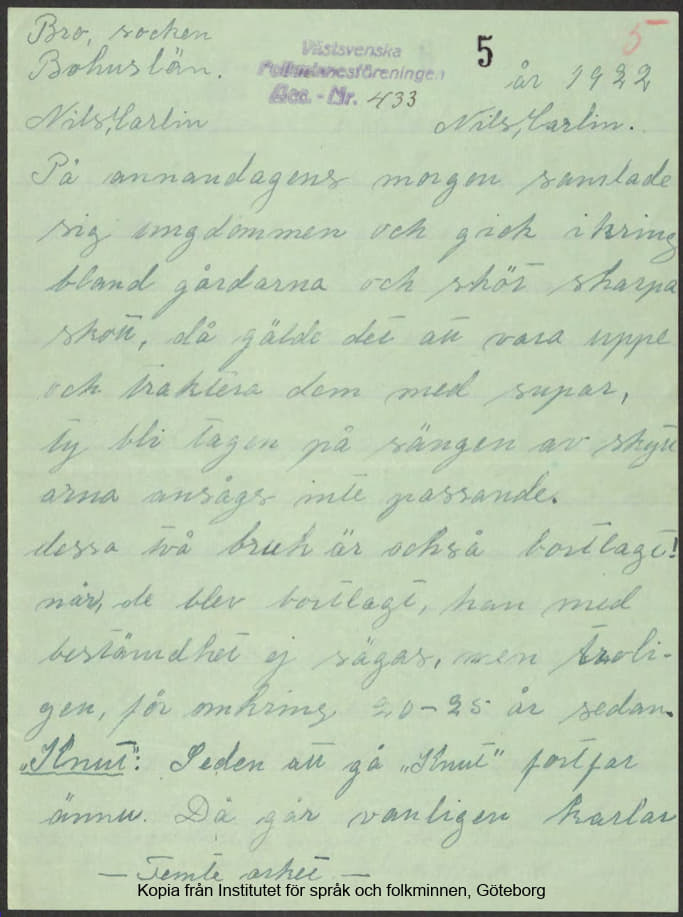 Bro, socken
Bohuslän.
Västsvenska
Folkminnesföreningen
Acc. - Nr. 433
5
5
år 1922
Nils Carlin
Nils Carlin.
På annandagens morgon samlade
sig ungdommen och gick ikring
bland gårdarna och sköt skarpa
skott, då gälde det att vara uppe
och traktera dom med supar,
ty bli tagen på sängen av skytt
arna ansågs inte passande.
dessa två bruk är också bortlagt!
når, de blev bortlagt, kan med
bestämdhet ej sägas, men troli-
gen, för omkring 20-25 år sedan.
„Knut": Seden att gå „Knut" fortfar
ännu. Då går vanligen karlar
— Femte arket —
Kopia från Institutet för språk och folkminnen, Göteborg